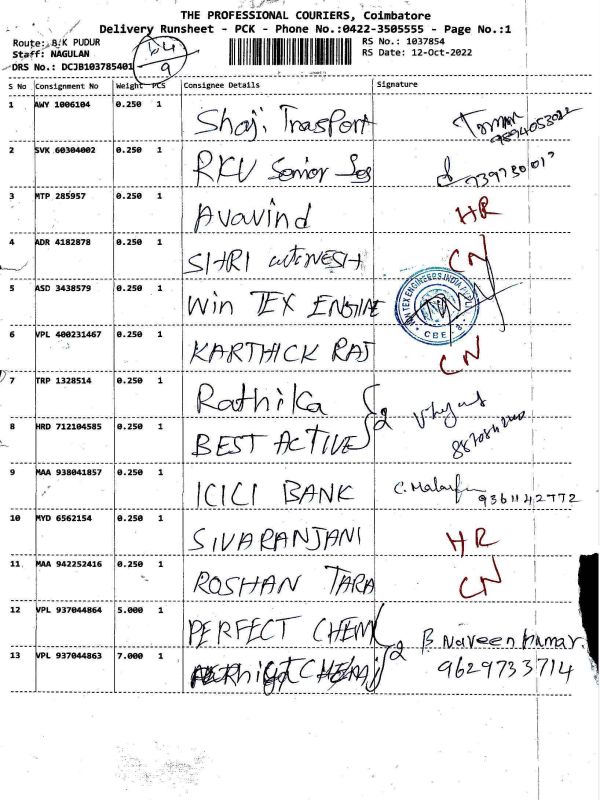 THE PROFESSIONAL COURIERS, Coimbatore
Delivery Runsheet - PCK - Phone No.:0422-3505555 - Page No.:1
Route: S.K PUDUR
Staff: NAGULAN
DRS No.: DCJB103785401
9
RS No.: 1037854
RS Date: 12-Oct-2022
S No Consignment No Weight PCS Consignee Details Signature
1 AWY 1006104 0.250 1 Shaji Trasport
2 SVK 60304002 0.250 1 RKV Senior
3 MTP 285957 0.250 1 Avavind HR
4 ADR 4182878 0.250 1 SIHRI CN
5 ASD 3438579 0.250 1 Win TEX ENGINE
WIN TEX ENGINEERS INDIA CBE
6 VPL 400231467 0.250 1 KARTHICK RAJ CN
7 TRP 1328514 0.250 1 Rathika 2
8 HRD 712104585 0.250 1 BEST ACTIVE
9 MAA 938041857 0.250 1 ICICI BANK 9361142772
10 MYD 6562154 0.250 1 SIVARANJANI HR
11 MAA 942252416 0.250 1 ROSHAN TARA CN
12 VPL 937044864 5.000 1 PERFECT CHEM 2 B. Naveen Kumar.
13 VPL 937044863 7.000 1 9629733714